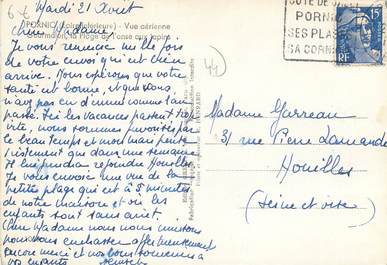 Mardi 21 Août
PORNIC (Loire-Inférieure) - Vue aérienne
Gourmalon, la Plage de l'anse aux lapins
Chère Madame,
Je vous remercie mille fois
de votre envoi qui est bien
arrivé. Nous espérons que votre
santé est bonne, et que vous
n'avez pas eu d'ennui comme l'an
passé. Ici les vacances passent trop
vite, nous sommes favorisés par
le beau temps et mon mari peut
vraiment que dans une semaine
il reprendre Houilles
Je vous envoie une vue de la
petite plage qui est à 5 minutes
de notre maison et où les
enfants sont sans arrêt.
Chère Madame nous nous unissons
pour vous embrasser affectueusement
encore merci et nos bons souvenirs à
vos enfants
44
CÔTE DE JADE
PORNIC
SES PLAGES
SA CORNICHE
15
Madame Garreau
31 rue Pierre Lamandé
Houilles
(Seine et Oise)